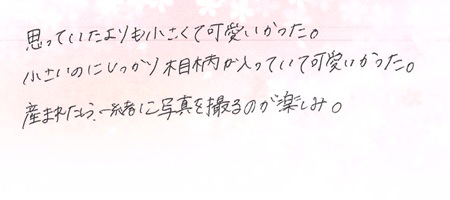 思っていたよりも小さくて可愛いかった。
小さいのにしっかり相柄が入っていて可愛いかった。
産まれたら、一緒に写真を撮るのが楽しみ。